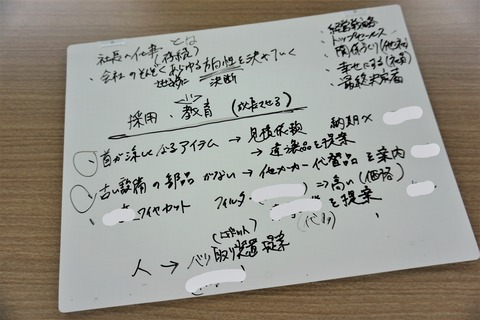 社長の仕事とは
(存続)
・会社のあらゆる方向性を決めていく
決断
採用・教育 (成長させる)
首が涼しくなるアイテム → 見積依頼 納期×
→ 違う製品を提案
古い設備の部品がない → 他メーカー代替品を案内
ワイヤセット フィルター ⇒ 高い(価格)
を提案
(ロボット)
人 → バリ取り装置提案
経営戦略
・トップセールス
・関係づくり(他社)
・幸せにする(社員)
・最終決定者